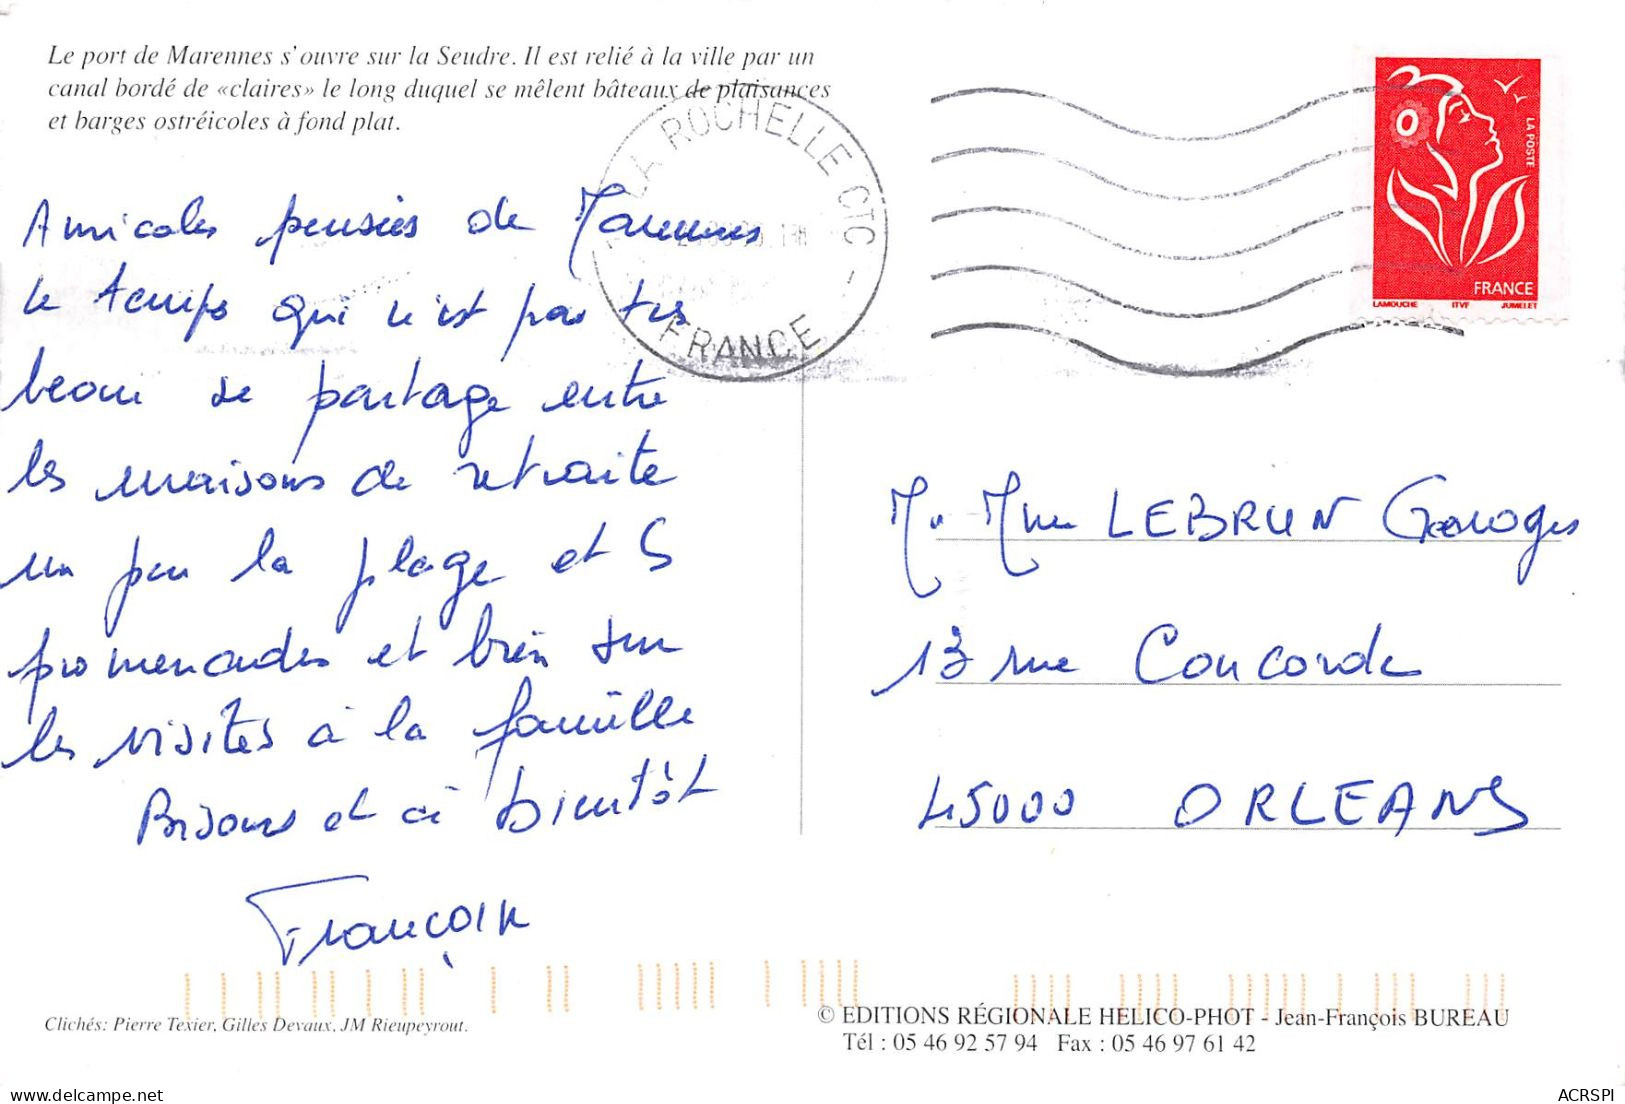 Le port de Marennes s'ouvre sur la Seudre. Il est relié à la ville par un
canal bordé de «claires» le long duquel se mêlent bâteaux de plaisances
et barges ostréicoles à fond plat.
LA ROCHELLE CTC -
FRANCE
LA POSTE
FRANCE
LAMOUCHE ITVF JUMELET
Amicales pensées de Marennes
le temps qui n'est pas très
beau se partage entre
les maisons de retraite
un peu la plage et
promenades et bien sur
les visites à la famille
Bisous et à bientôt
M. Mme LEBRUN Georges
13 rue Concorde
45000 ORLEANS
Clichés: Pierre Texier, Gilles Devaux, JM Rieupeyrout.
© EDITIONS RÉGIONALE HELICO-PHOT - Jean-François BUREAU
Tél : 05 46 92 57 94 Fax : 05 46 97 61 42
delcampe.net
ACRSPI